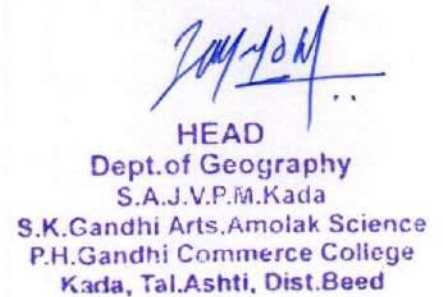 HEAD
Dept.of Geography
S.A.J.V.P.M.Kada
S.K.Gandhi Arts.Amolak Science
P.H.Gandhi Commerce College
Kada, Tal.Ashti, Dist.Beed